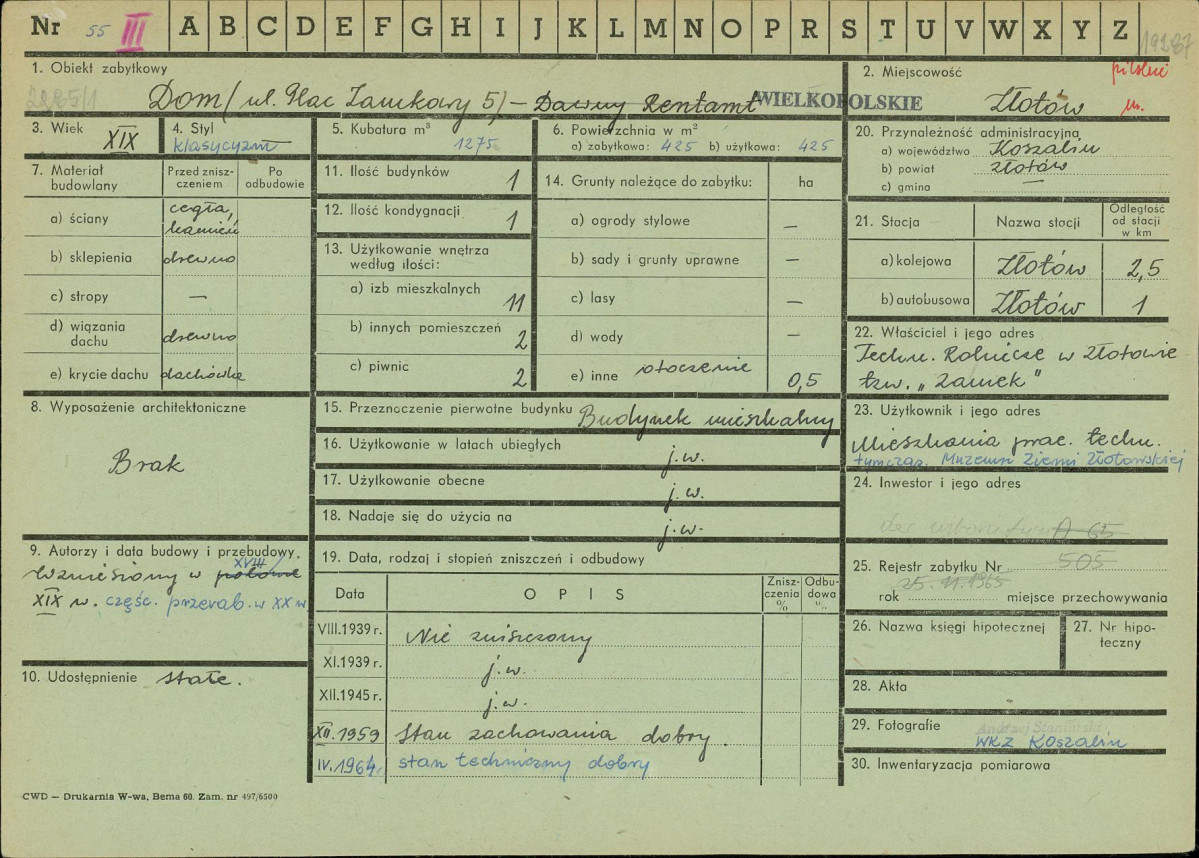 Nr 55 III A B C D E F G H I J K L M N O P R S T U V W X Y Z
1. Obiekt zabytkowy
Dom (ul. Plac Zamkowy 5) – Dawny Rentamt
WIELKOPOLSKIE
2. Miejscowość
Złotów
3. Wiek XIX
4. Styl
klasycyzm
5. Kubatura m³
1275
6. Powierzchnia w m²
a) zabytkowa: 425 b) użytkowa: 425
20. Przynależność administracyjna
a) województwo Koszalin
b) powiat Złotów
c) gmina —
7. Materiał budowlany
Przed zniszczeniem
Po odbudowie
a) ściany cegła, kamień
b) sklepienia drewno
c) stropy —
d) wiązania dachu drewno
e) krycie dachu dachówka
11. Ilość budynków 1
12. Ilość kondygnacji 1
13. Użytkowanie wnętrza według ilości:
a) izb mieszkalnych 11
b) innych pomieszczeń 2
c) piwnic 2
14. Grunty należące do zabytku: ha
a) ogrody stylowe —
b) sady i grunty uprawne —
c) lasy —
d) wody —
e) inne otoczenie 0,5
21. Stacja Nazwa stacji Odległość od stacji w km
a) kolejowa Złotów 2,5
b) autobusowa Złotów 1
22. Właściciel i jego adres
Techn. Rolnicze w Złotowie
tzw. „Zamek"
8. Wyposażenie architektoniczne
Brak
15. Przeznaczenie pierwotne budynku Budynek mieszkalny
16. Użytkowanie w latach ubiegłych j.w.
17. Użytkowanie obecne j.w.
18. Nadaje się do użycia na j.w.
23. Użytkownik i jego adres
Mieszkania prac. techn.
tymczas. Muzeum Ziemi Złotowskiej
24. Inwestor i jego adres
A 65
9. Autorzy i data budowy i przebudowy.
XVIII/
Wzniesiony w połowie
XIX w. częśc. przerab. w XX w
10. Udostępnienie stałe.
19. Data, rodzaj i stopień zniszczeń i odbudowy
Data OPIS Zniszczenia % Odbudowa %
VIII.1939 r. Nie zniszczony
XI.1939 r. j.w.
XII.1945 r. j.w.
XII.1959 Stan zachowania dobry.
IV.1964. stan techniczny dobry
25. Rejestr zabytku Nr 505
25.11.1965
rok miejsce przechowywania
26. Nazwa księgi hipotecznej
27. Nr hipoteczny
28. Akta
29. Fotografie
WKZ Koszalin
30. Inwentaryzacja pomiarowa
CWD — Drukarnia W-wa, Bema 60. Zam. nr 497/6500